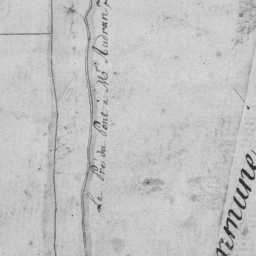 Le Pré du Pont à Mr. Audran
mmune